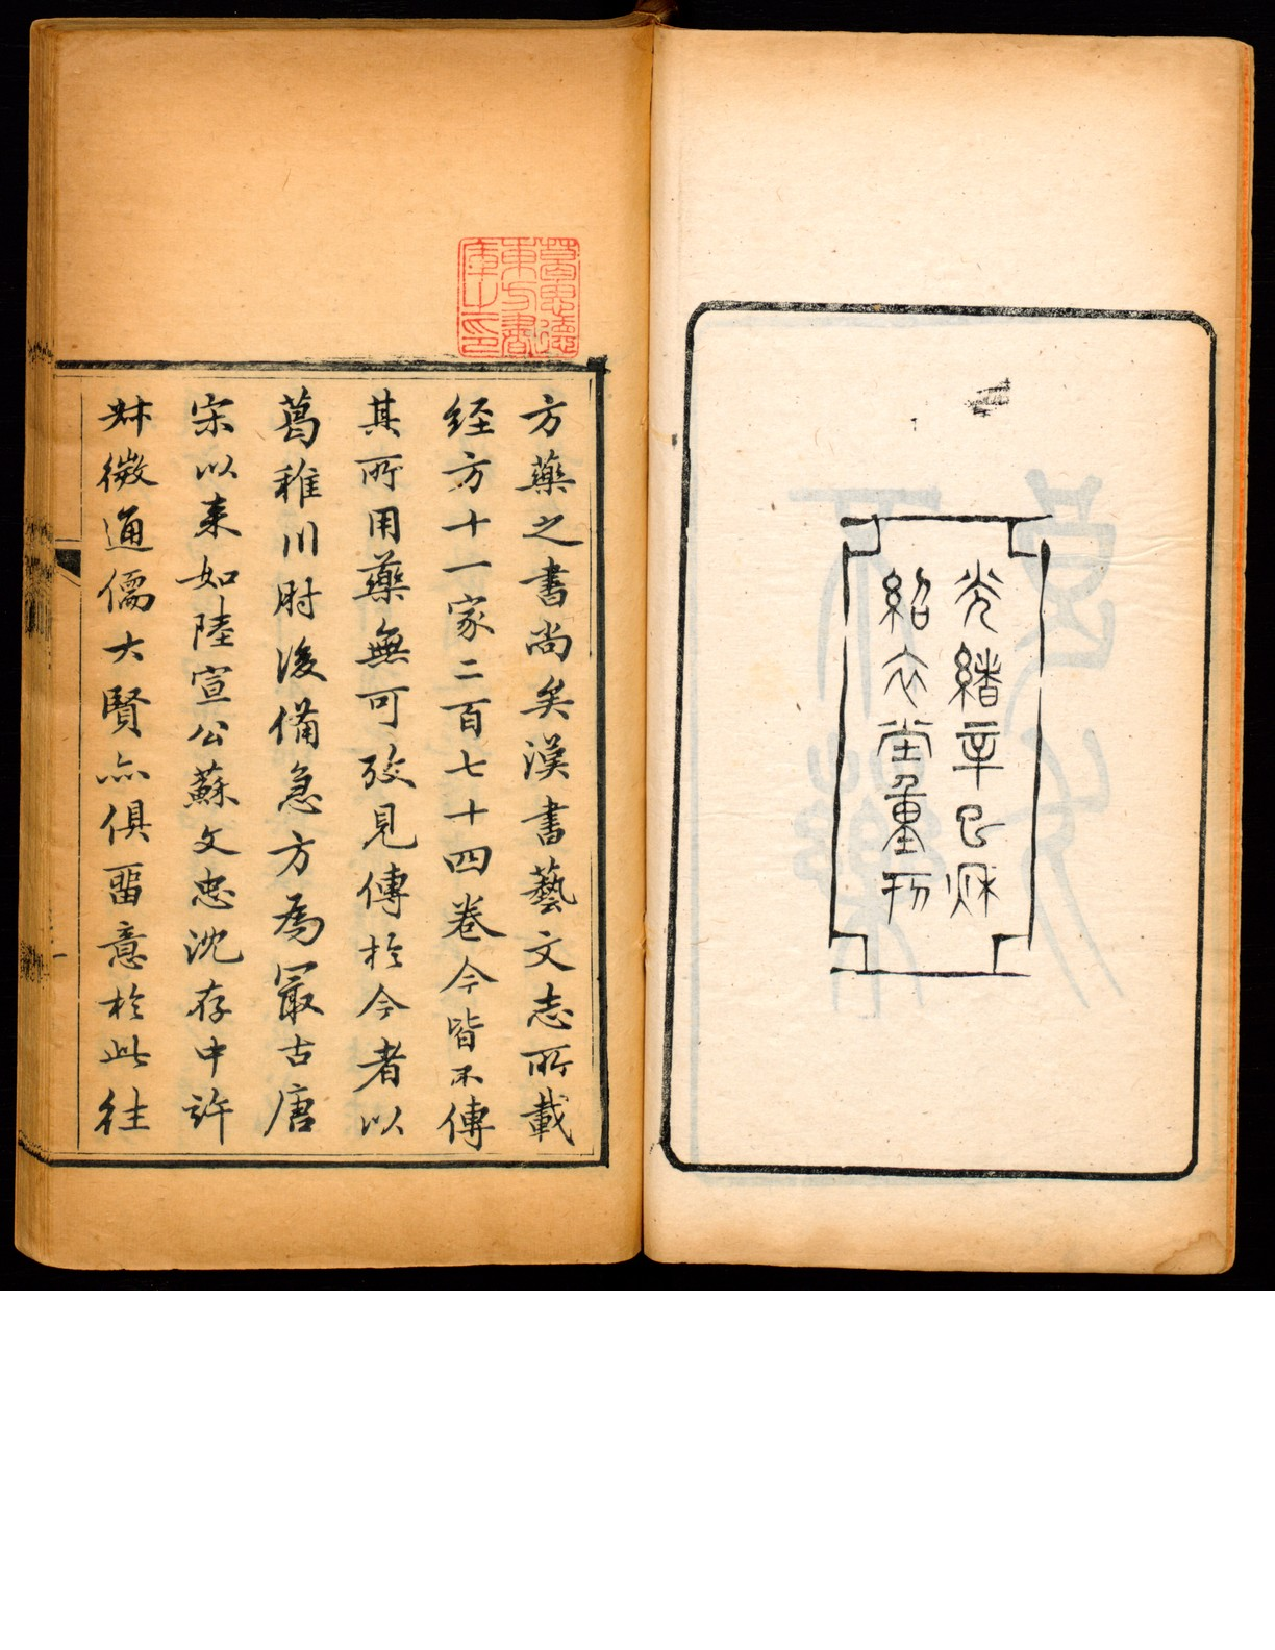 光緒辛巳秋
紹衣堂重刊
葛思德
東方書
庫之印
方藥之書尚矣漢書藝文志所載
经方十一家二百七十四卷今皆不傳
其所用藥無可攷見傳於今者以
葛稚川肘後備急方為冣古唐
宋以来如陸宣公蘇文忠沈存中許
叔微通儒大賢亦俱畱意於此往